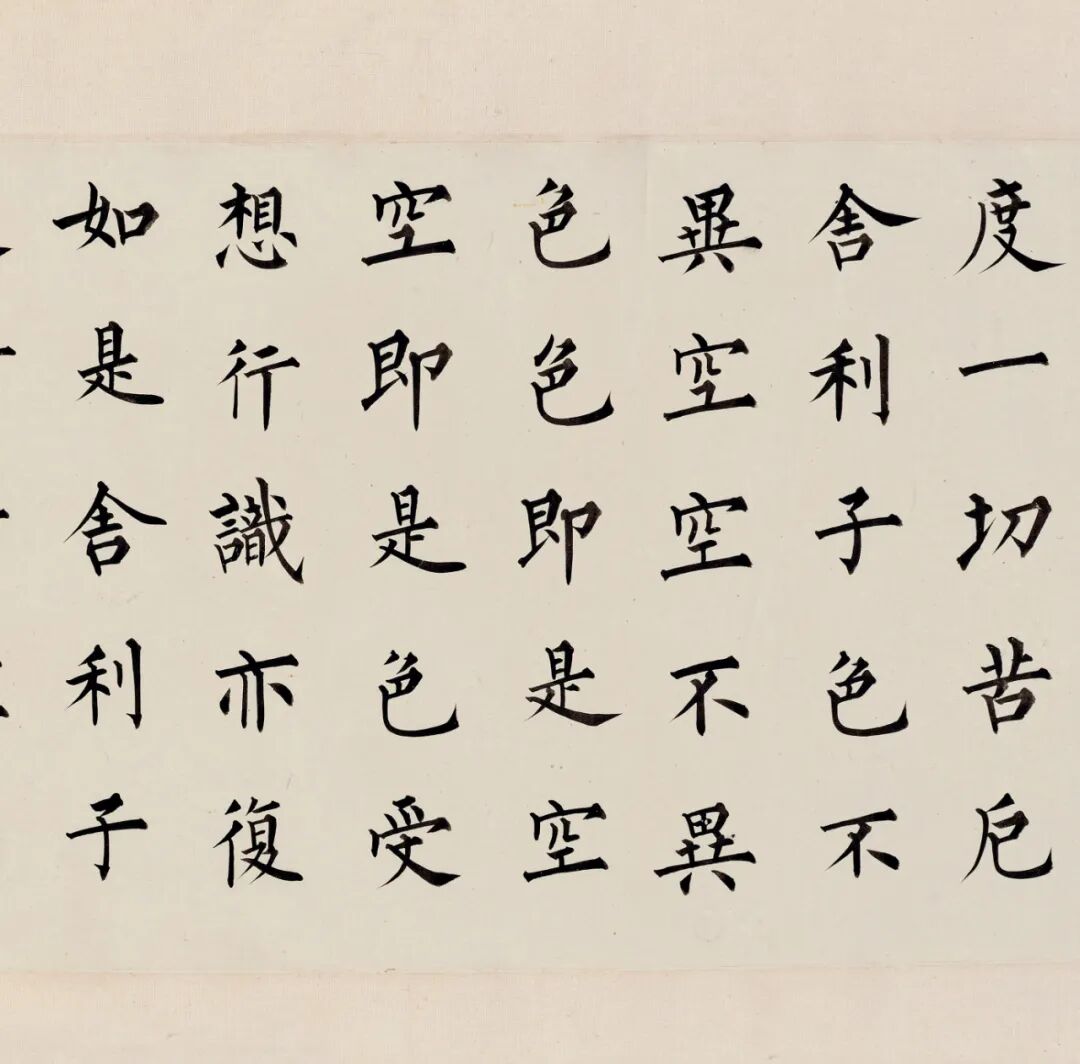 度一切苦厄
舍利子色不
異空空不異
色色即是空
空即是色受
想行識亦復
如是舍利子